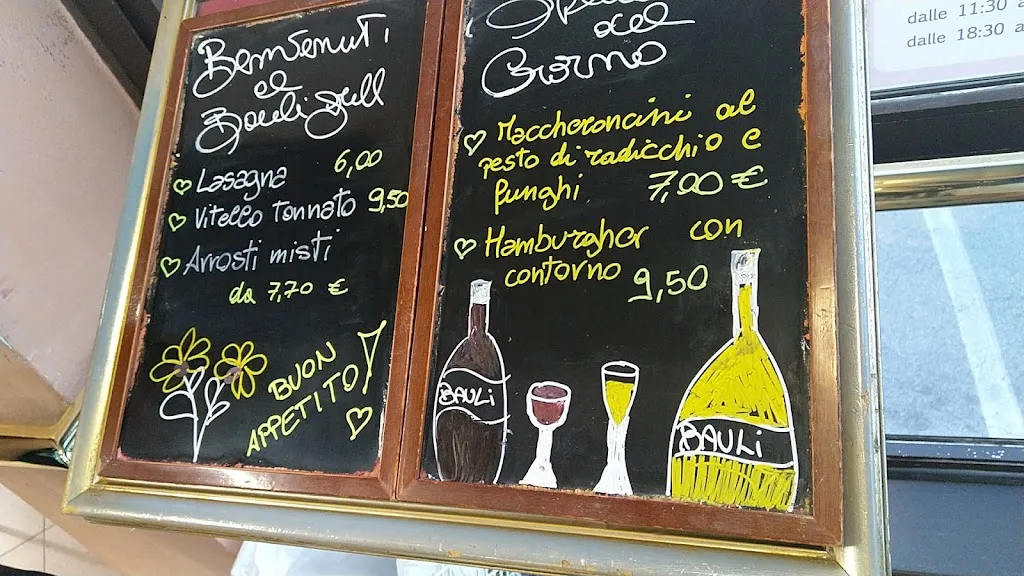 Benvenuti
al
Bauligrill
Lasagna 6,00
Vitello Tonnato 9,50
Arrosti misti
da 7,70 €
BUON
APPETITO!
del
Giorno
Maccheroncini al
pesto di radicchio e
funghi 7,00 €
Hamburgher con
contorno 9,50
BAULI
BAULI
dalle 11:30
dalle 18:30